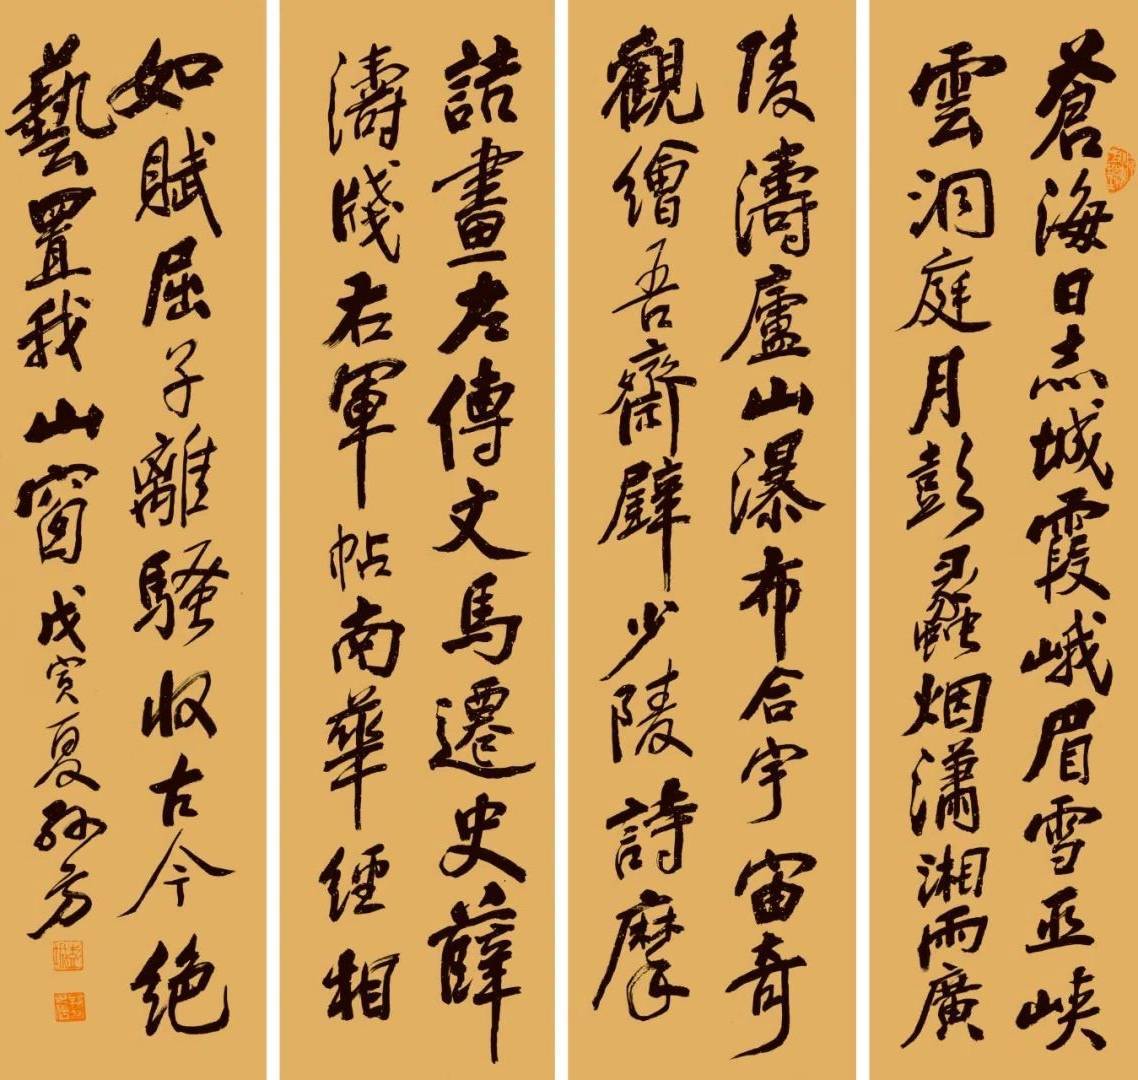 蒼海日赤城霞峨眉雪巫峽
雲洞庭月彭蠡烟瀟湘雨廣
陵濤廬山瀑布合宇宙奇
觀繪吾齋壁少陵詩摩
詰畫左傳文馬遷史薛
濤牋右軍帖南華經相
如賦屈子離騷收古今絕
藝置我山窗戊寅夏